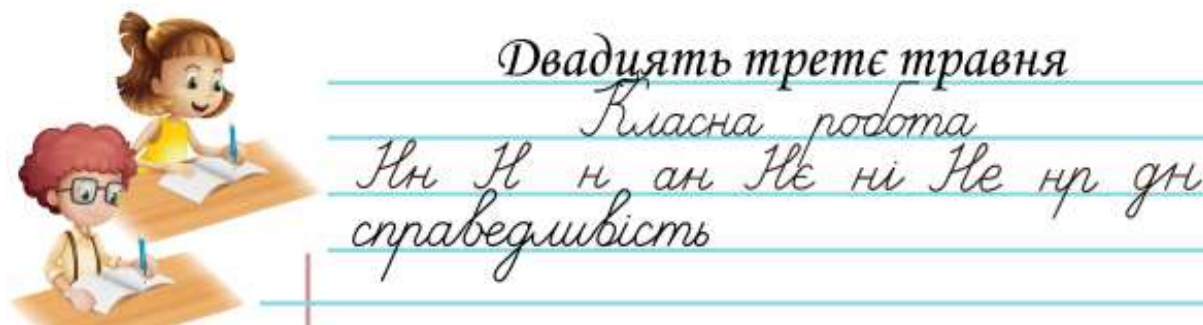 Двадцять третє травня
Класна робота
Нн Н н ан Нє ні Не нр дн
справедливість